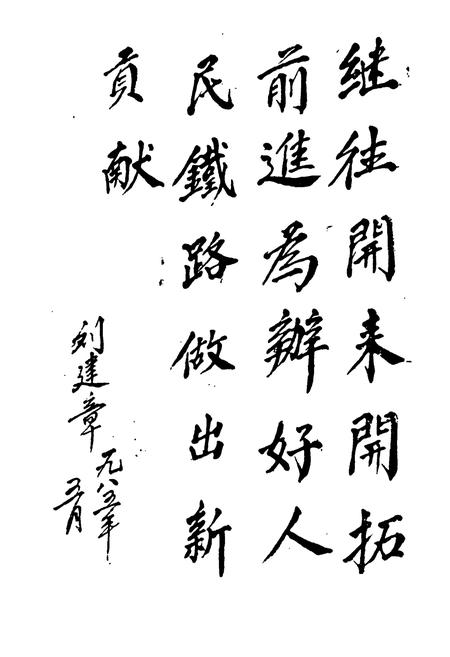 继往開来開拓
前進為辦好人
民鐵路做出新
貢献
刘建章
一九八五年
五月